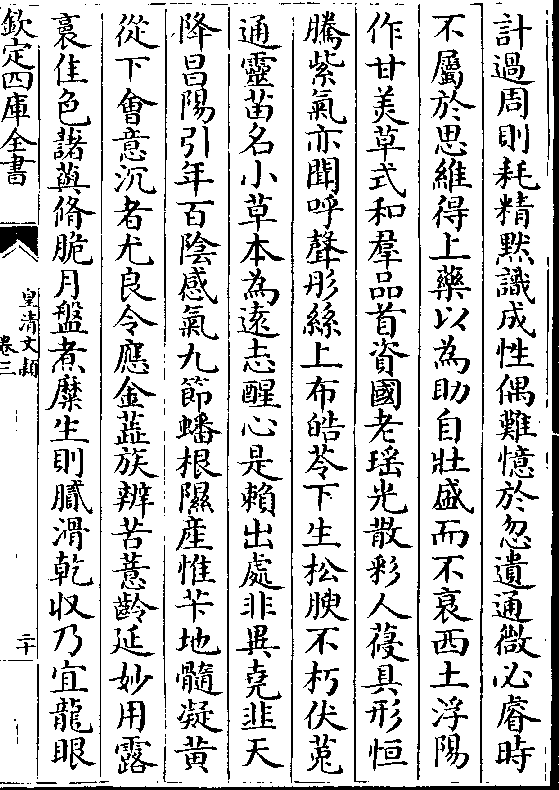 計過周則耗精默識成性偶難憶於忽遺通微必睿時
不屬於思維得上藥以為助自壯盛而不衰西土浮陽
作甘美草式和羣品首資國老瑤光散彩人葠具形恒
騰紫氣亦聞呼聲彤絲上布皓苓下生松腴不朽伏菟
通靈苗名小草本為遠志醒心是賴出處非異堯韭天
降昌陽引年百陰感氣九節蟠根隰產惟芐地髓凝黃
從下會意沉者尤良令應金葢族辨苦薏齡延妙用露
裛佳色諸藇脩脆月盤煮糜生則膩滑乾収乃宜龍眼
欽定四庫全書
皇清文穎
卷三
二十